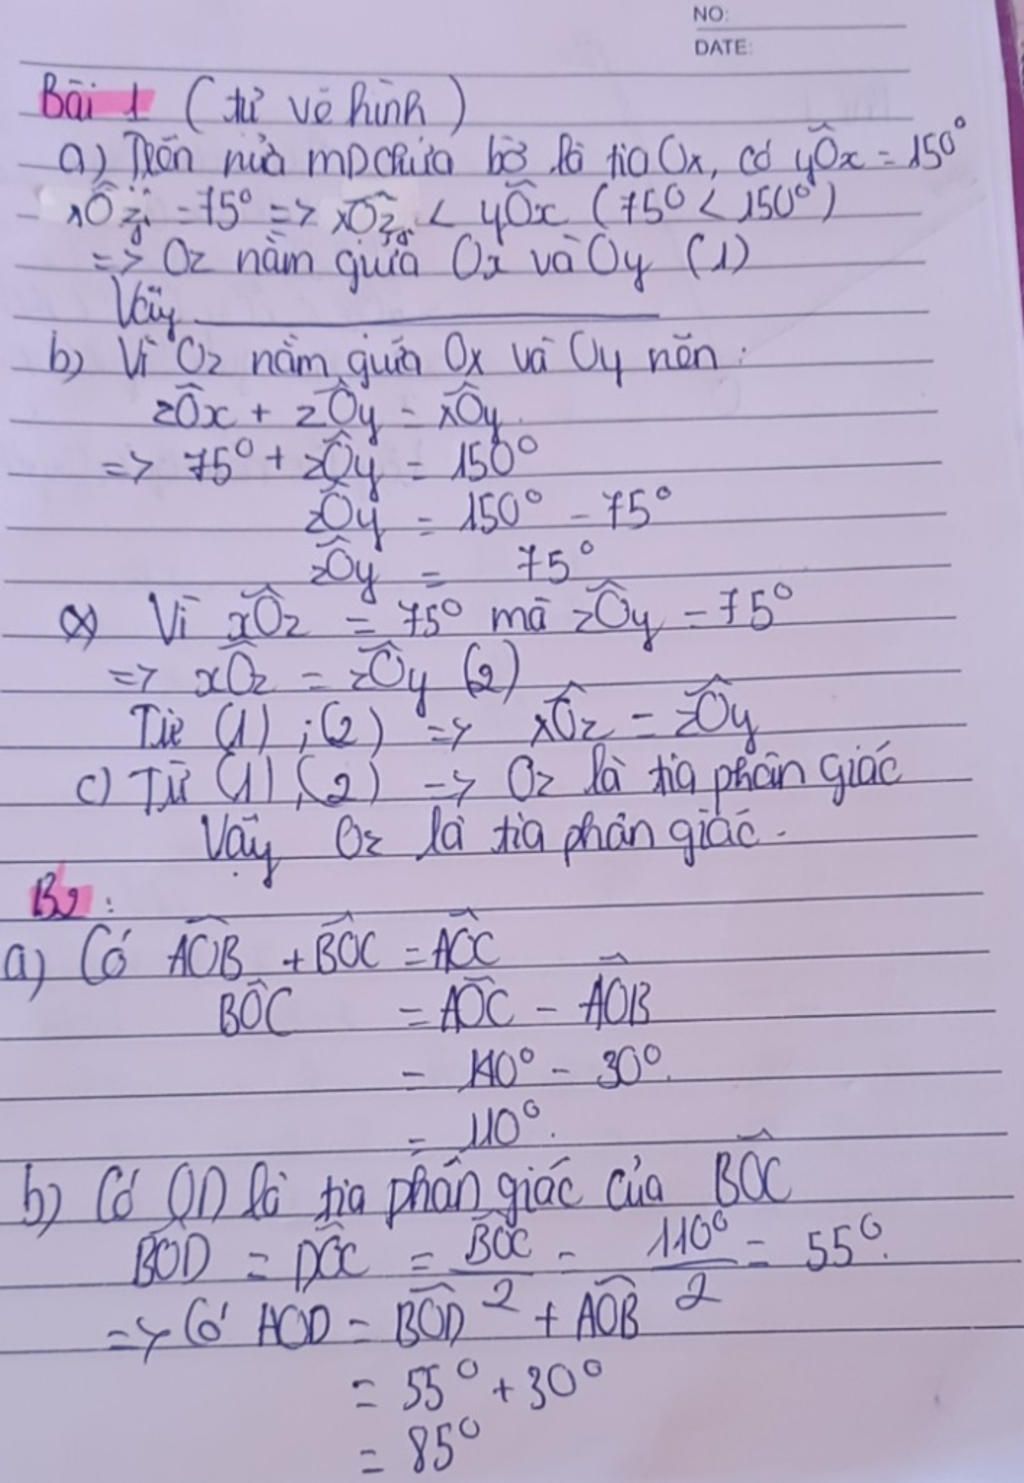 NO:
DATE:
Bài 1 (tự vẽ hình)
a) Trên nửa mp chứa bờ là tia Ox, có yÔx = 150°
xÔz = 75° => xÔz < yÔx (75° < 150°)
=> Oz nằm giữa Ox và Oy (1)
Vậy
b) Vì Oz nằm giữa Ox và Oy nên:
zÔx + zÔy = xÔy
=> 75° + zÔy = 150°
zÔy = 150° - 75°
zÔy = 75°
Vì xÔz = 75° mà zÔy = 75°
=> xÔz = zÔy (2)
Từ (1) ; (2) => xÔz = zÔy
c) Từ (1), (2) => Oz là tia phân giác
Vậy Oz là tia phân giác.
B2:
a) Có AÔB + BÔC = AÔC
BÔC = AÔC - AÔB
= 140° - 30°.
= 110°.
b) Có OD là tia phân giác của BÔC
BOD = DÔC = BÔC/2 = 110°/2 = 55°.
=> Có AOD = BÔD + AÔB
= 55° + 30°
= 85°